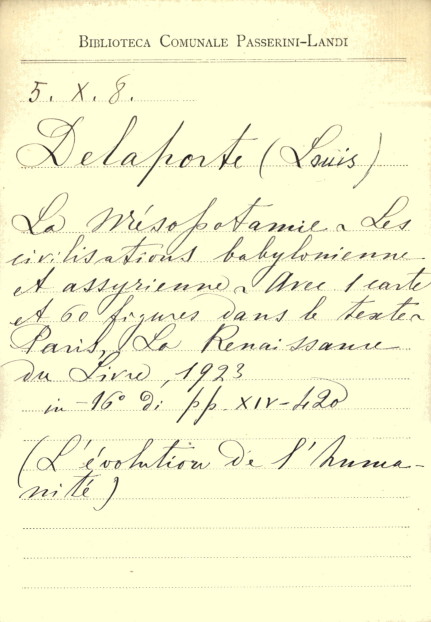 BIBLIOTECA COMUNALE PASSERINI-LANDI
5. X. 8.
Delaporte (Louis)
La Mésopotamie - Les
civilisations babylonienne
et assyrienne - Avec 1 carte
et 60 figures dans le texte -
Paris, La Renaissance
du Livre, 1923
in-16° di pp. XIV-420
(L'évolution de l'huma-
nité)